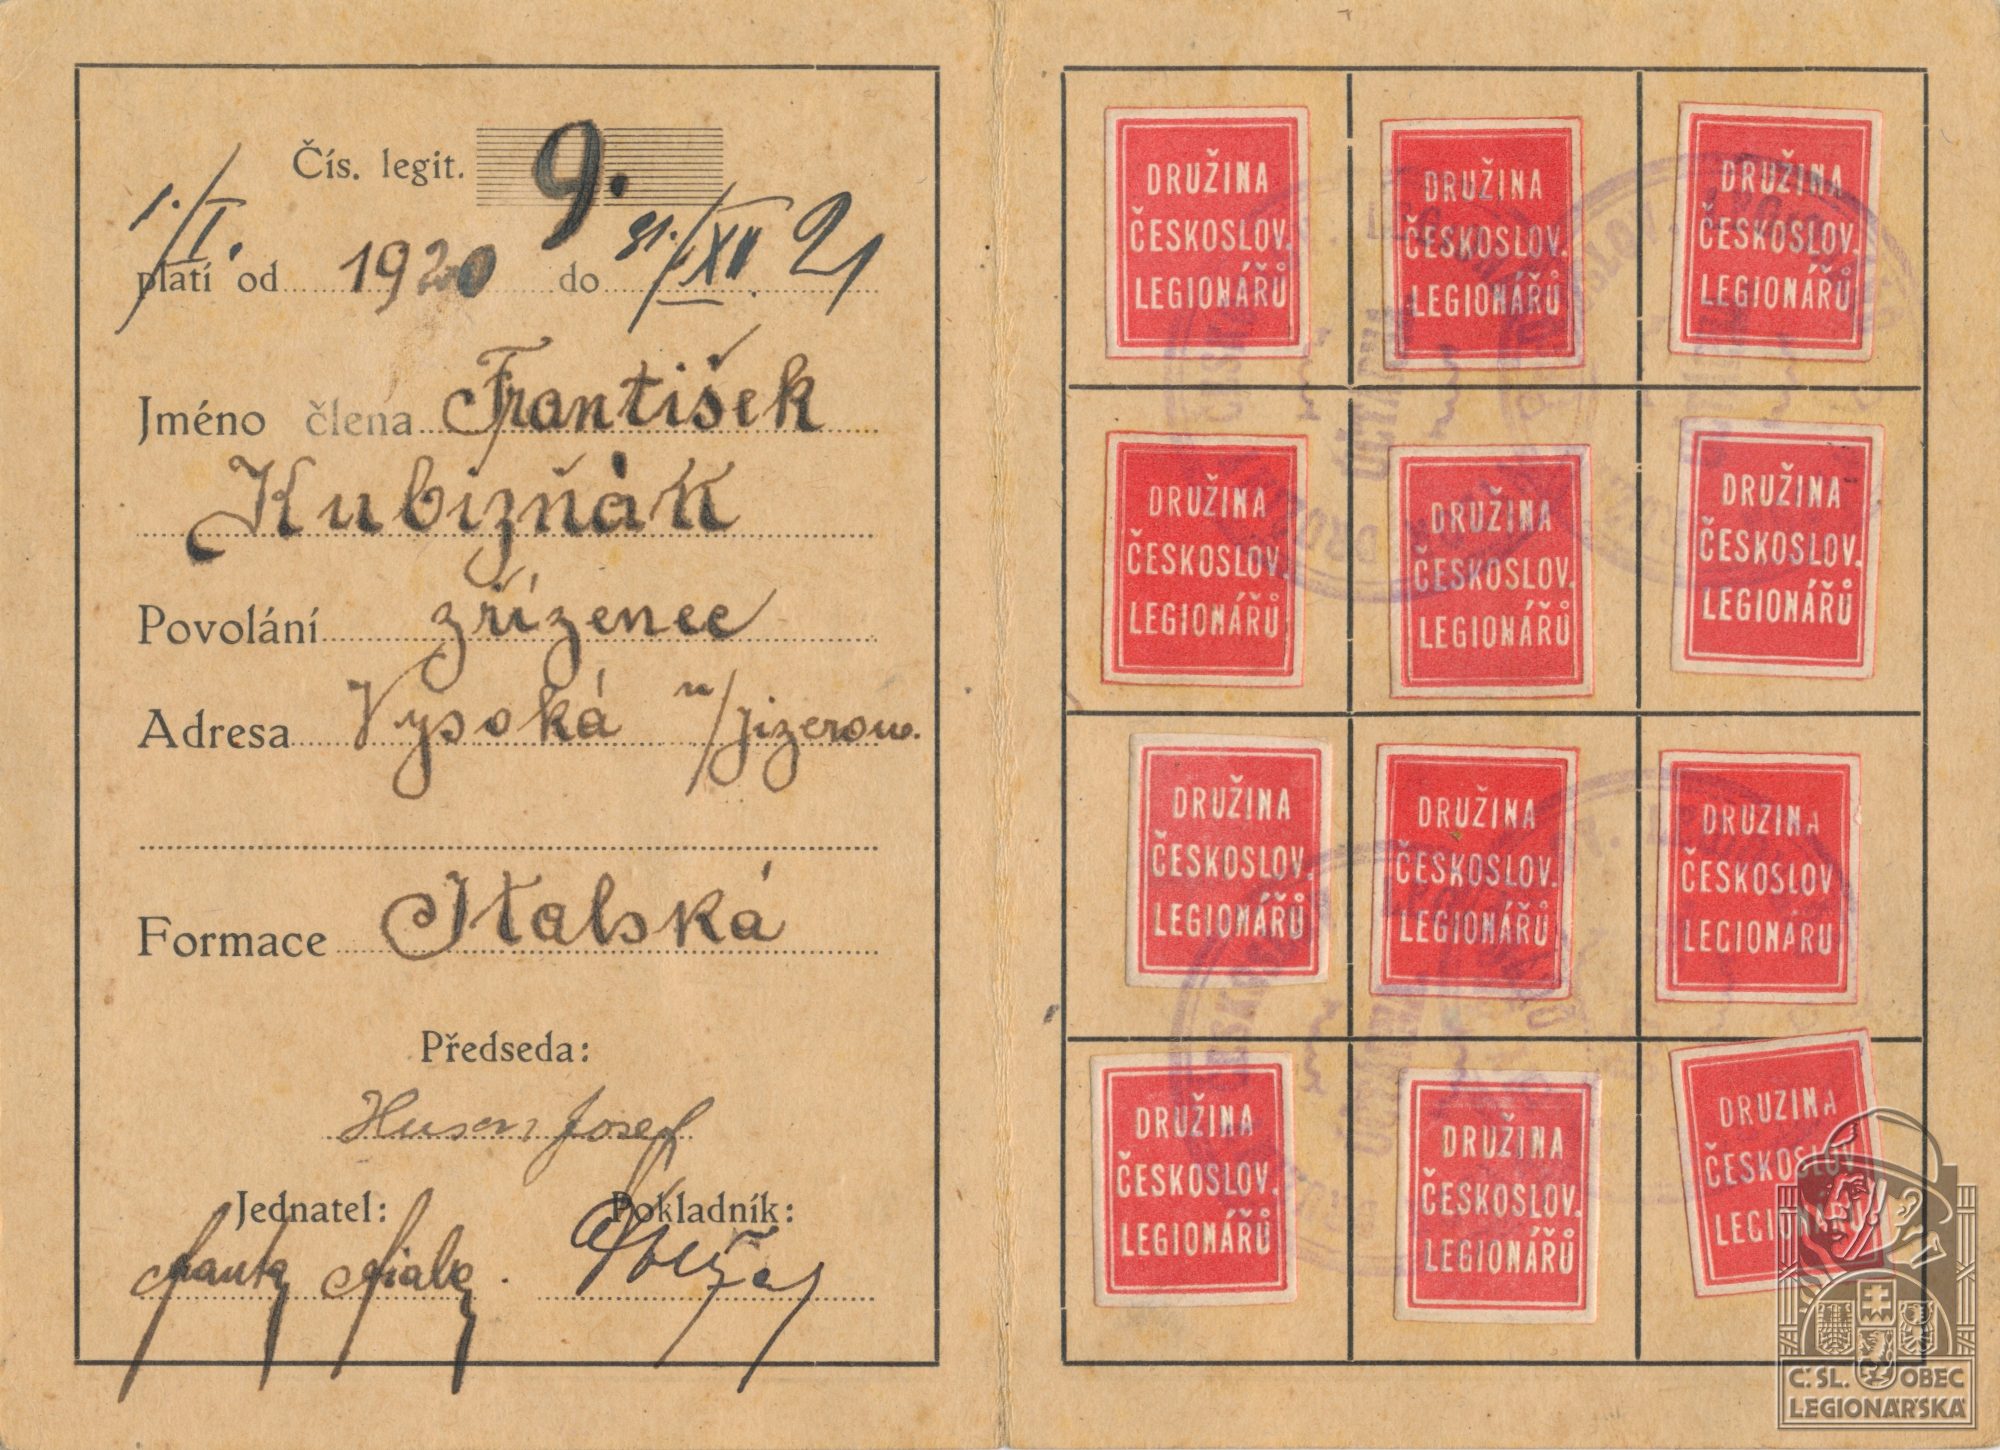 Čís. legit. 9.
1./I. 31./XII. 21
platí od 1920 do
Jméno člena František
Kubizňák
Povolání zřízenec
Adresa Vysoká n/Jizerou.
Formace Italská
Předseda:
Josef
Jednatel: Pokladník:
DRUŽINA ČESKOSLOV. LEGIONÁŘŮ
DRUŽINA ČESKOSLOV. LEGIONÁŘŮ
DRUŽINA ČESKOSLOV. LEGIONÁŘŮ
DRUŽINA ČESKOSLOV. LEGIONÁŘŮ
DRUŽINA ČESKOSLOV. LEGIONÁŘŮ
DRUŽINA ČESKOSLOV. LEGIONÁŘŮ
DRUŽINA ČESKOSLOV. LEGIONÁŘŮ
DRUŽINA ČESKOSLOV. LEGIONÁŘŮ
DRUŽINA ČESKOSLOV LEGIONÁŘŮ
DRUŽINA ČESKOSLOV. LEGIONÁŘŮ
DRUŽINA ČESKOSLOV. LEGIONÁŘŮ
DRUŽINA ČESKOSLOV
Č.SL. OBEC
LEGIONÁŘSKÁ